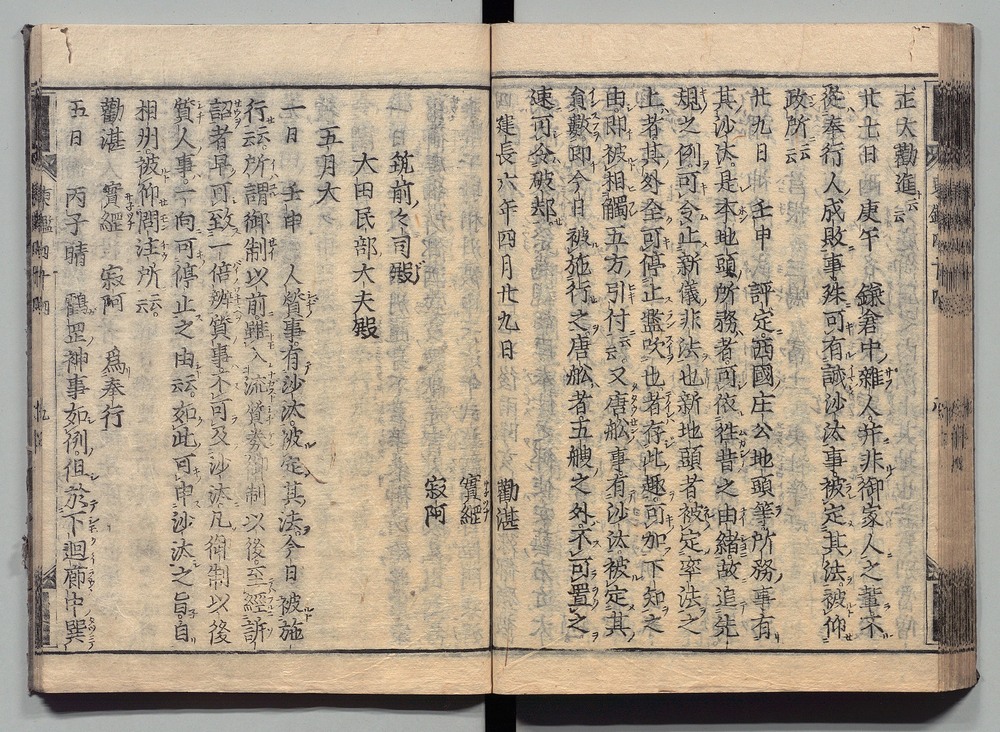 正大勸進云云
廿七日　庚午　鎌倉中雜人并非御家人之輩不
從奉行人成敗事殊可有誡沙汰事被定其法被仰
政所云云
廿九日　壬申　評定西國庄公地頭等所務事有
其沙汰是本地頭所務者可依往昔之由緒故追先
規之例可令止新儀非法也新地頭者被定率法之
上者其外全可停止濫吹也者存此趣可加下知之
由即被相觸五方引付云云又唐舩事有沙汰被定其
負數即今日被施行之唐舩者五艘之外不可置之
速可令破却
建長六年四月廿九日　勸湛
實經
寂阿
筑前々司殿
大田民部大夫殿
五月大
一日　壬申　人質事有沙汰被定其法今日被施
行云云所謂御制以前雖入流質券御制以後至經訴
詔者早可致一倍辨質事不可及沙汰凡御制以後
質人事一向可停止之由云云如此可申沙汰之旨自
相州被仰問注所云云
勸湛　實經　寂阿　爲奉行
五日　丙子晴　鶴罡神事如例但於下廻廊中巽